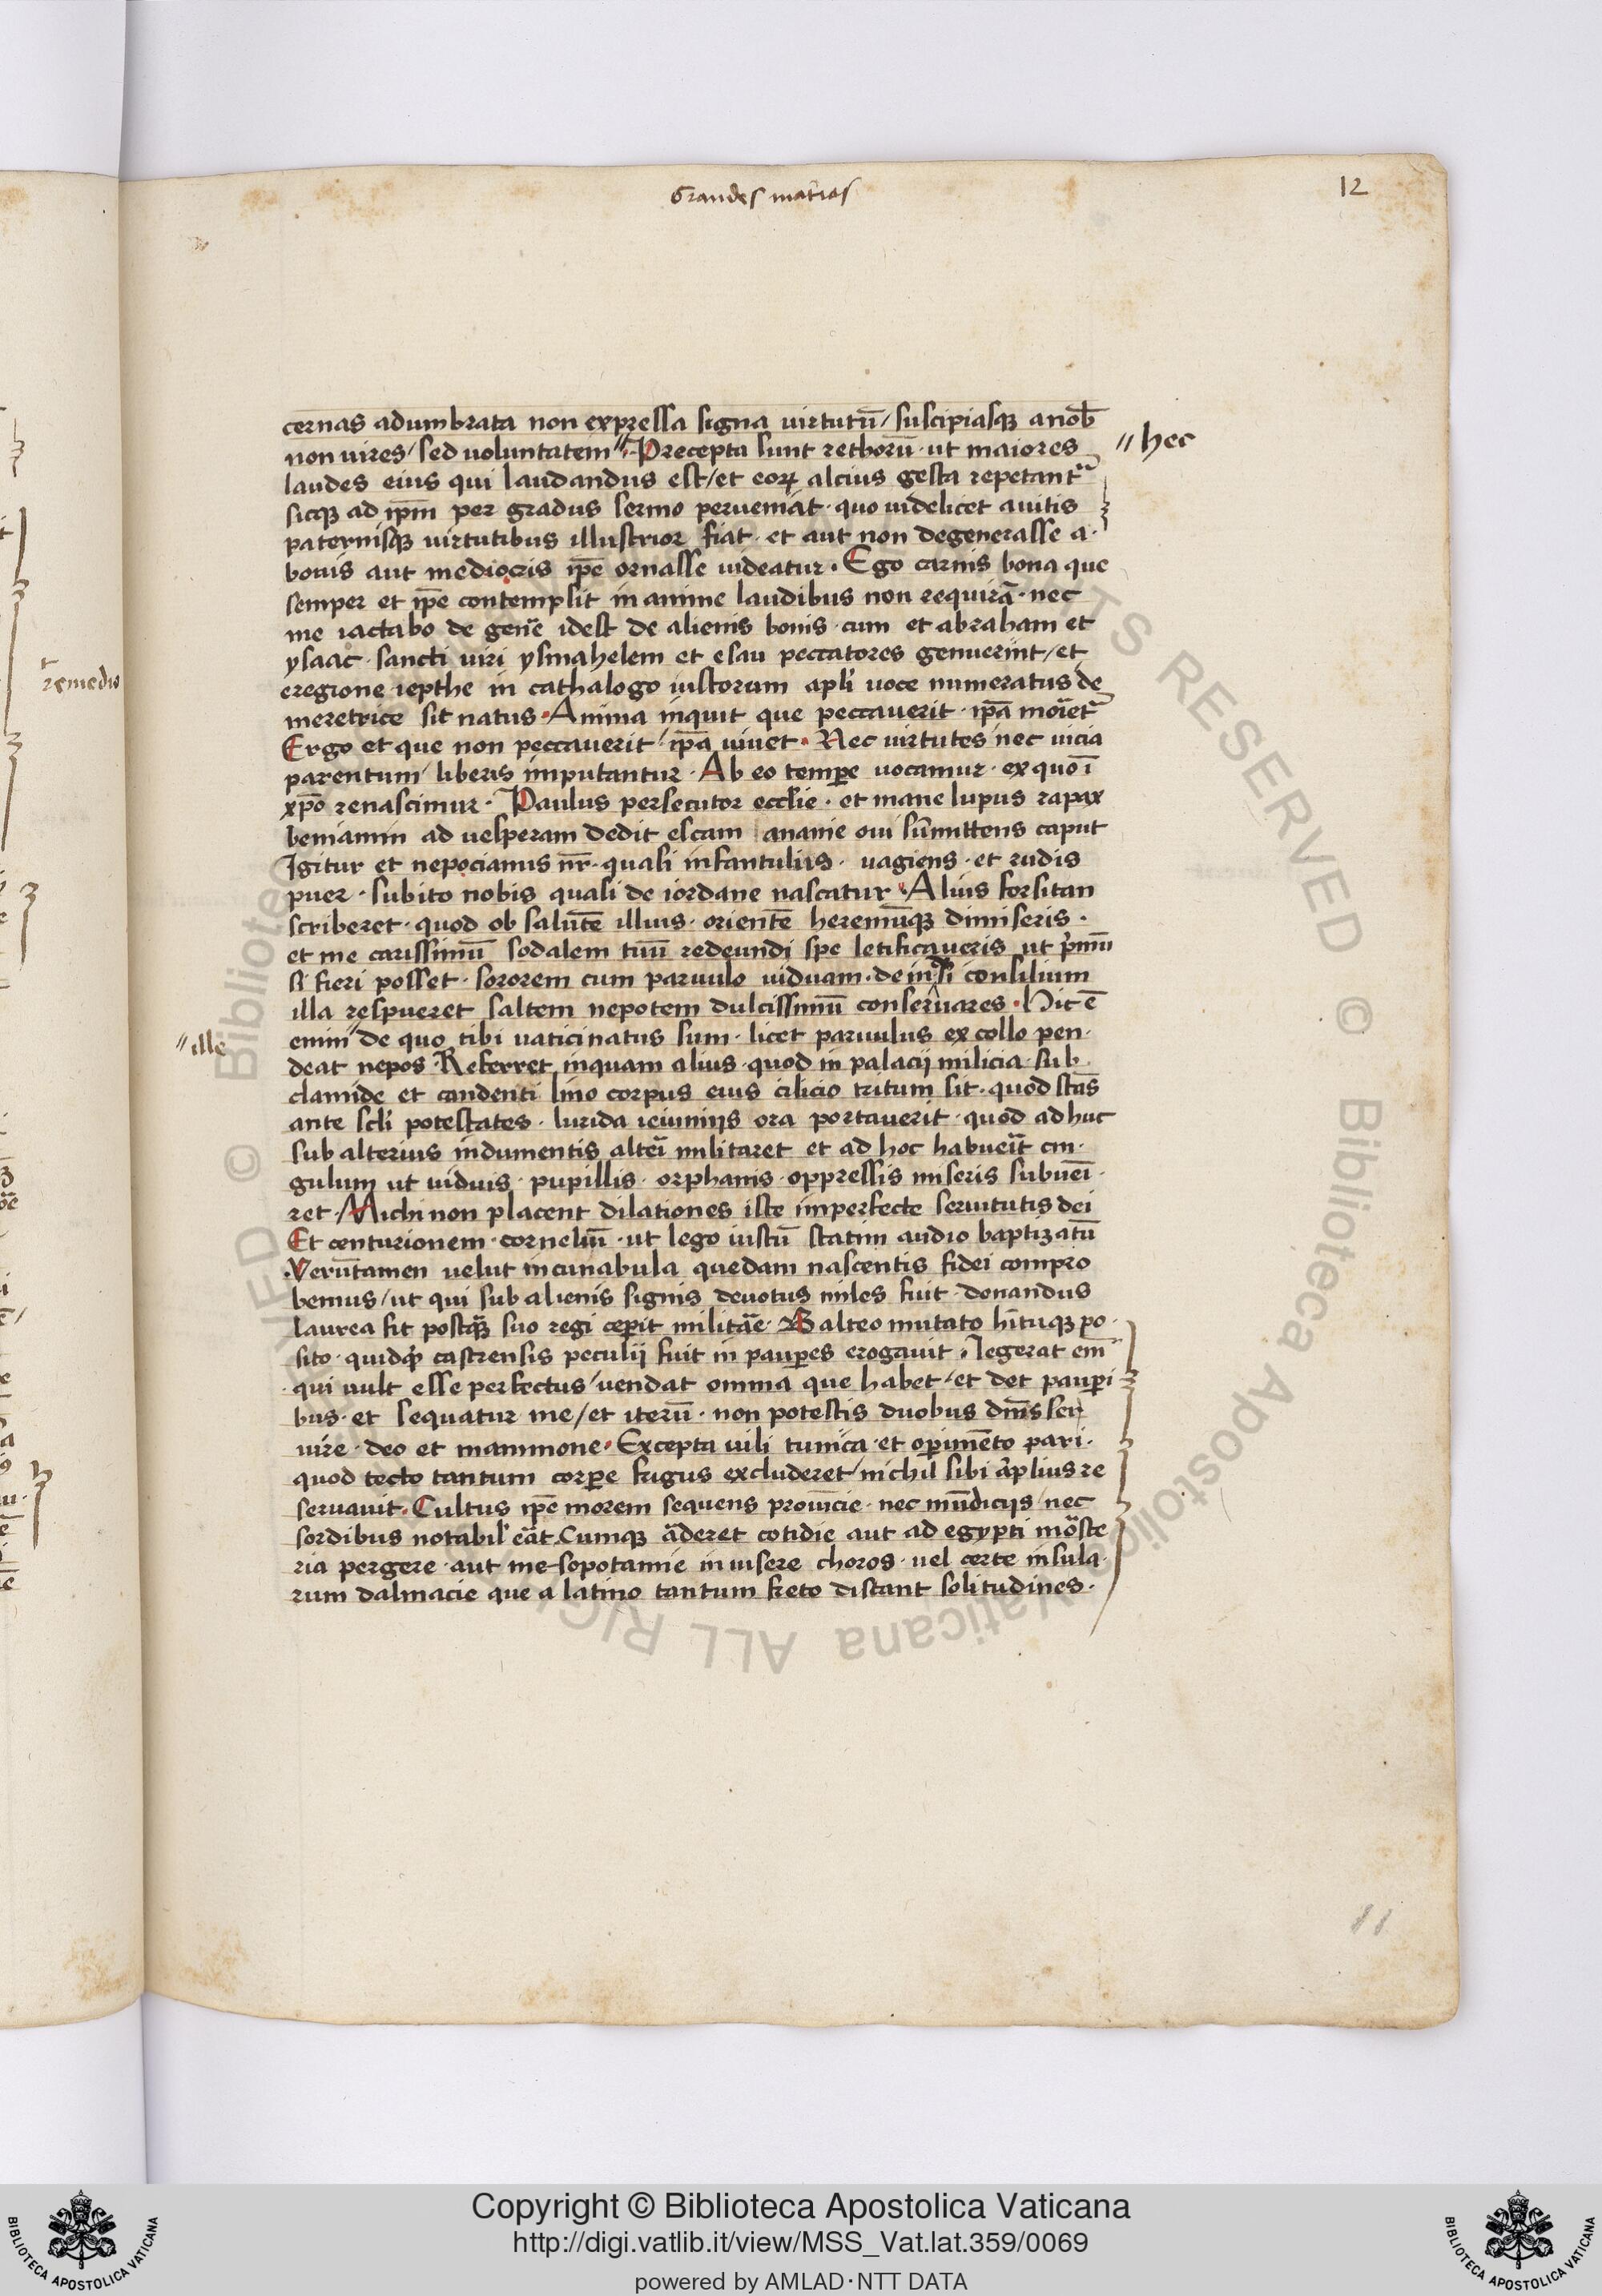 Grandes mat̄ias
12
cernas adumbrata non expressa signa uirtutū / suscipiasqꝫ a nob̄
non uires / sed uoluntatem · Precepta sunt rethorū · ut maiores
hec
laudes eius qui laudandus est / et eoꝝ alcius gesta repetant᷑
sicqꝫ ad ip̄m per gradus sermo perueniāt · quo uidelicet auitis
paternisqꝫ uirtutibus illustrior fiat · et aut non degenerasse a ·
bonis aut mediocris ip̄e ornasse uideatur · Ego carnis bona que
semper et ip̄e contempsit in anime laudibus non requirā · nec
me iactabo de gen̄e idest de alienis bonis · cum et abraham et
ysaac · sancti uiri ysmahelem et esau peccatores genuerint / et
eregione iepthe in cathalogo iustorum apl̄i uoce numeratus de
meretrice sit natus · Anima inquit que peccauerit · ip̄a moīet᷑
Ergo et que non peccauerit / ip̄a uiuet · Nec uirtutes nec uicia
parentum / liberis imputantur · Ab eo temꝑe uocamur · ex quo ī
xp̄o renascimur · Paulus persecutor eccl̄ie · et mane lupus rapax
beniamin ad uesperam dedit escam ananie oui sūmittens caput
Igitur et nepocianus nr̄ · quasi infantulus · uagiens · et rudis
puer · subito nobis quasi de iordane nascatur · Alius forsitan
scriberet · quod ob salutē illius · orientē heremūqꝫ dimiseris ·
et me carissimū sodalem tuū redeundi spe letificaueris ut p̄mū
si fieri posset · sororem cum paruulo uiduam · dein si consilium
illa respueret saltem nepotem dulcissimū conseruares · Hic ē
enim de quo tibi uaticinatus sum · licet paruulus ex collo pen ·
ille
deat nepos · Referret inquam alius · quod in palacij milicia · sub
clamide et candenti lino corpus eius cilicio tritum sit · quod stās
ante sc̄li potestates · lurida ieiunijs ora portauerit · quod adhuc
sub alterius indumentis alteī militaret et ad hoc habueīt cin ·
gulum ut uiduis · pupillis · orphanis · oppressis miseris subueī ·
ret · Michi non placent dilationes iste imperfecte seruitutis dei
Et centurionem · corneliū · ut lego iustū statim audio baptizatū
Verūtamen uelut incunabula quedam nascentis fidei compro
bemus / ut qui sub alienis signis deuotus miles fuit · donandus
laurea sit postqꝫ̄ suo regi ceperit militāe · Balteo mutato hītuqꝫ po ·
sito · quidqͥd castrensis peculij fuit in pauꝑes erogauit · legerat em̄
qui uult esse perfectus / uendat omnia que habet / et det pauꝑi
bus · et sequatur me / et iterū · non potestis duobus dn̄is ser
uire · deo et mammone · Excepta uili tunica · et oꝑimēto pari ·
quod tecto tantum corꝑe frigus excluderet / nichil sibi āplius re
seruauit · Cultus ip̄e morem sequens prouīcie · nec mūdicijs / nec
sordibus notabil̄ eāt · Cumqꝫ āderet cotidie aut ad egypti mōste
ria pergere · aut mesopotamie inuisere choros · uel certe insula ·
rum dalmacie que a latino tantum freto distant solitudines ·
remedio
11
© Biblioteca Apostolica Vaticana ALL RIGHTS RESERVED
Copyright © Biblioteca Apostolica Vaticana
http://digi.vatlib.it/view/MSS_Vat.lat.359/0069
powered by AMLAD·NTT DATA
BIBLIOTECA APOSTOLICA VATICANA
BIBLIOTECA APOSTOLICA VATICANA